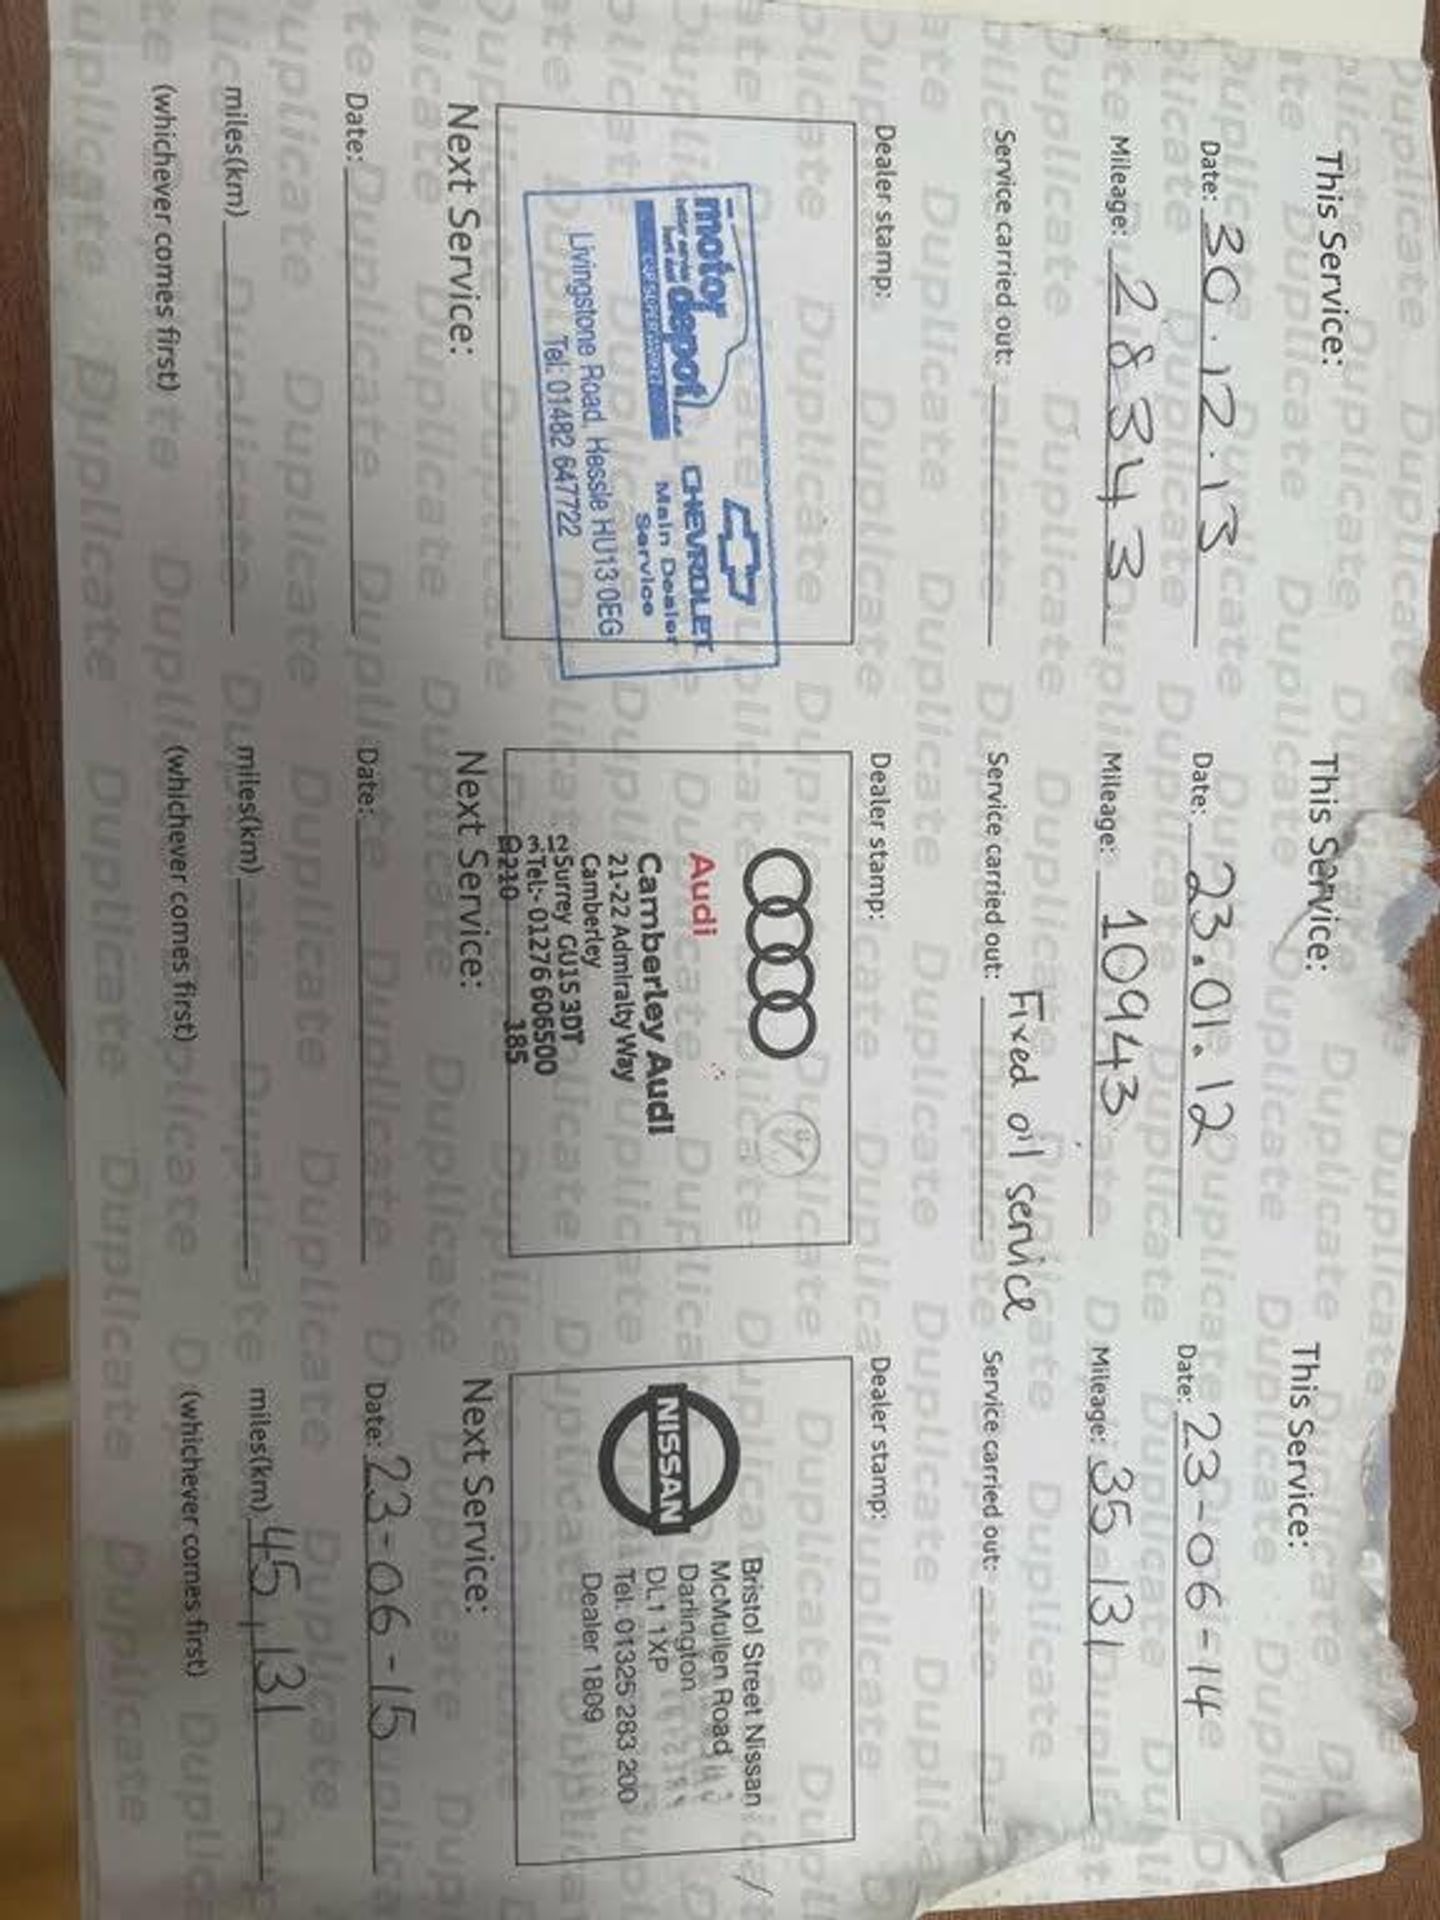 This Service:
Date: 30.12.13
Mileage: 28343
Service carried out:
Dealer stamp:
motor depot
CHEVROLET
Main Dealer
Service
Livingstone Road, Hessle HU13 0EG
Tel: 01482 647722
Next Service:
Date:
miles(km)
(whichever comes first)
This Service:
Date: 23.01.12
Mileage: 10943
Service carried out: Fixed oil service
Dealer stamp:
Audi
Camberley Audi
21-22 Admiralty Way
Camberley
Surrey GU15 3DT
Tel:- 01276 606500
185
Next Service:
Date:
miles(km)
(whichever comes first)
This Service:
Date: 23-06-14
Mileage: 35131
Service carried out:
Dealer stamp:
NISSAN
Bristol Street Nissan
McMullen Road
Darlington
DL1 1XP
Tel: 01325 283 200
Dealer 1809
Next Service:
Date: 23-06-15
miles(km) 45,131
(whichever comes first)
Duplicate